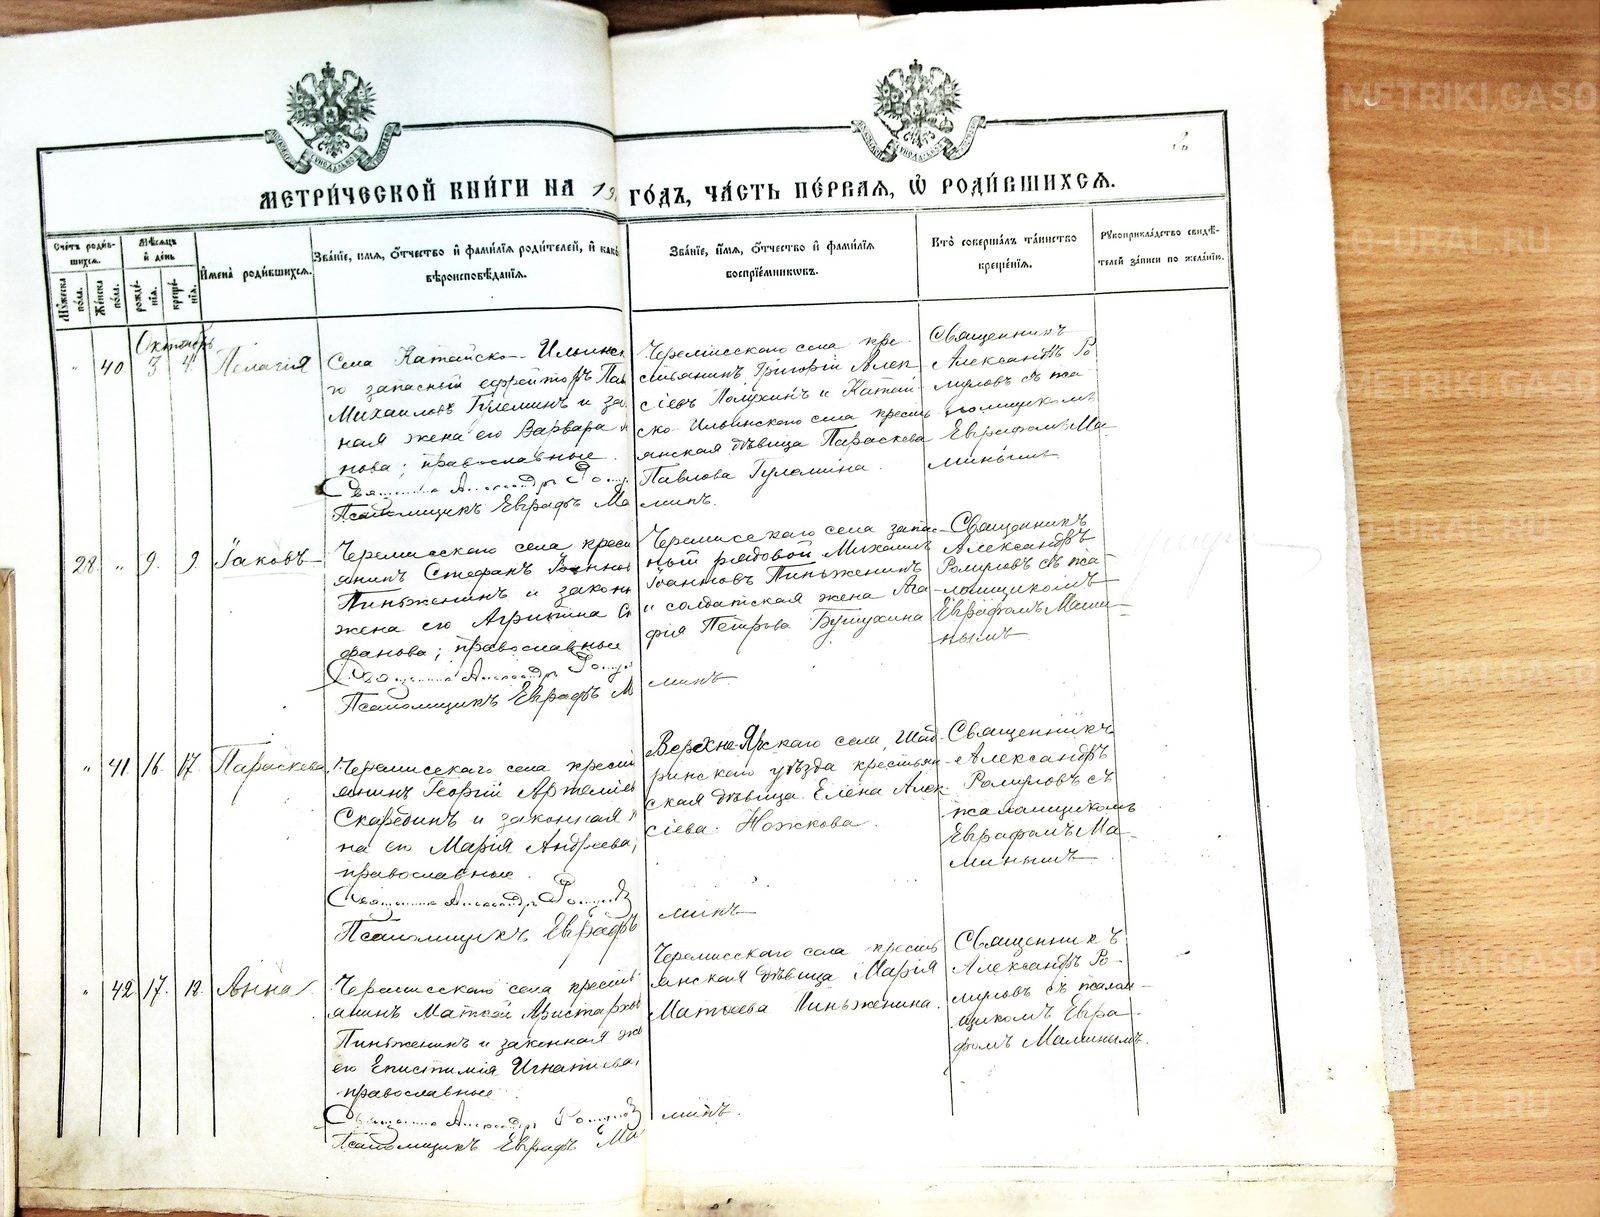 МЕТРИ́ЧЕСКОЙ КНИ́ГИ НА 19
ГО́ДЪ, ЧА́СТЬ ПЕ́РВАЯ, Ѽ РОДИ́ВШИХСЯ.
Сче́тъ роди́в-
шихся.
Мѣ́сяцъ
и҆ де́нь
Му́жеска
по́ла.
Же́нска
по́ла.
рожде́-
нїя.
креще́-
нїя.
И҆мена̀ роди́вшихся.
Зва́нїе, и҆́мя, ѻ҆́тчество и҆ фами́лїя роди́телей, и҆ како́
вѣроисповѣ́данїя.
Зва́нїе, и҆́мя, ѻ҆́тчество и҆ фами́лїя
воспрїе́мниковъ.
Кто̀ соверша́лъ та́инство
креще́нїя.
Рꙋкоприкла́дство свидѣ́-
телей за́писи по жела́нїю.
Октябрь
" 40 3 4 Пелагія
Села Катайско-Ильинск
го запасный ефрейторъ Пав
Михаиловъ Гулеминъ и зак
ная жена его Варвара
нова; православные.
Священникъ Александръ
Псаломщикъ Евграфъ Ма
Черемисскаго села кре-
стьянинъ Григорій Алек
сіевъ Полухинъ и Катай
ско-Ильинскаго села кресть
янская дѣвица Параскева
Павлова Гулемина.
минъ.
Священникъ
Александръ Ро
мировъ съ пса
ломщикомъ
Евграфомъ Ма
минымъ
28 " 9. 9. Іаковъ
Черемисскаго села крест
янинъ Стефанъ
Пиньженинъ и законн
жена его Агрипина Ст
фанова; православные
Священникъ Александръ
Псаломщикъ Евграфъ М
Черемисскаго села запас-
ный рядовой Михаилъ
Іоанновъ Пиньженинъ
и солдатская жена Ага
фія Петрова Бушухина
минъ.
Священникъ
Александръ
Ромировъ съ пса
ломщикомъ
Евграфомъ Мами-
нымъ
" 41 16 17. Параскева
Черемисскаго села кресть
янинъ Георгій Артеміев
Скарединъ и законная
на его Марія Андреева,
православные.
Священникъ Александръ
Псаломщикъ Евграфъ
Верхне-Ярскаго села, Шад-
ринскаго уѣзда крестьян
ская дѣвица Елена Алек
сіева Ножкова.
минъ
Священникъ
Александръ
Ромировъ съ
псаломщикомъ
Евграфомъ Ма-
минымъ
" 42 17. 18. Анна
Черемисскаго села кресть
янинъ Матѳей Аристархов
Пиньженинъ и законная же
его Епистимія Игнатіева,
православные
Священникъ Александръ
Псаломщикъ Евграфъ Ма
Черемисскаго села кресть
янская дѣвица Марія
Матѳеева Пиньженина.
минъ.
Священникъ
Александръ Ро-
мировъ съ псалом-
щикомъ Евгра-
фомъ Маминымъ.
METRIKI.GASO